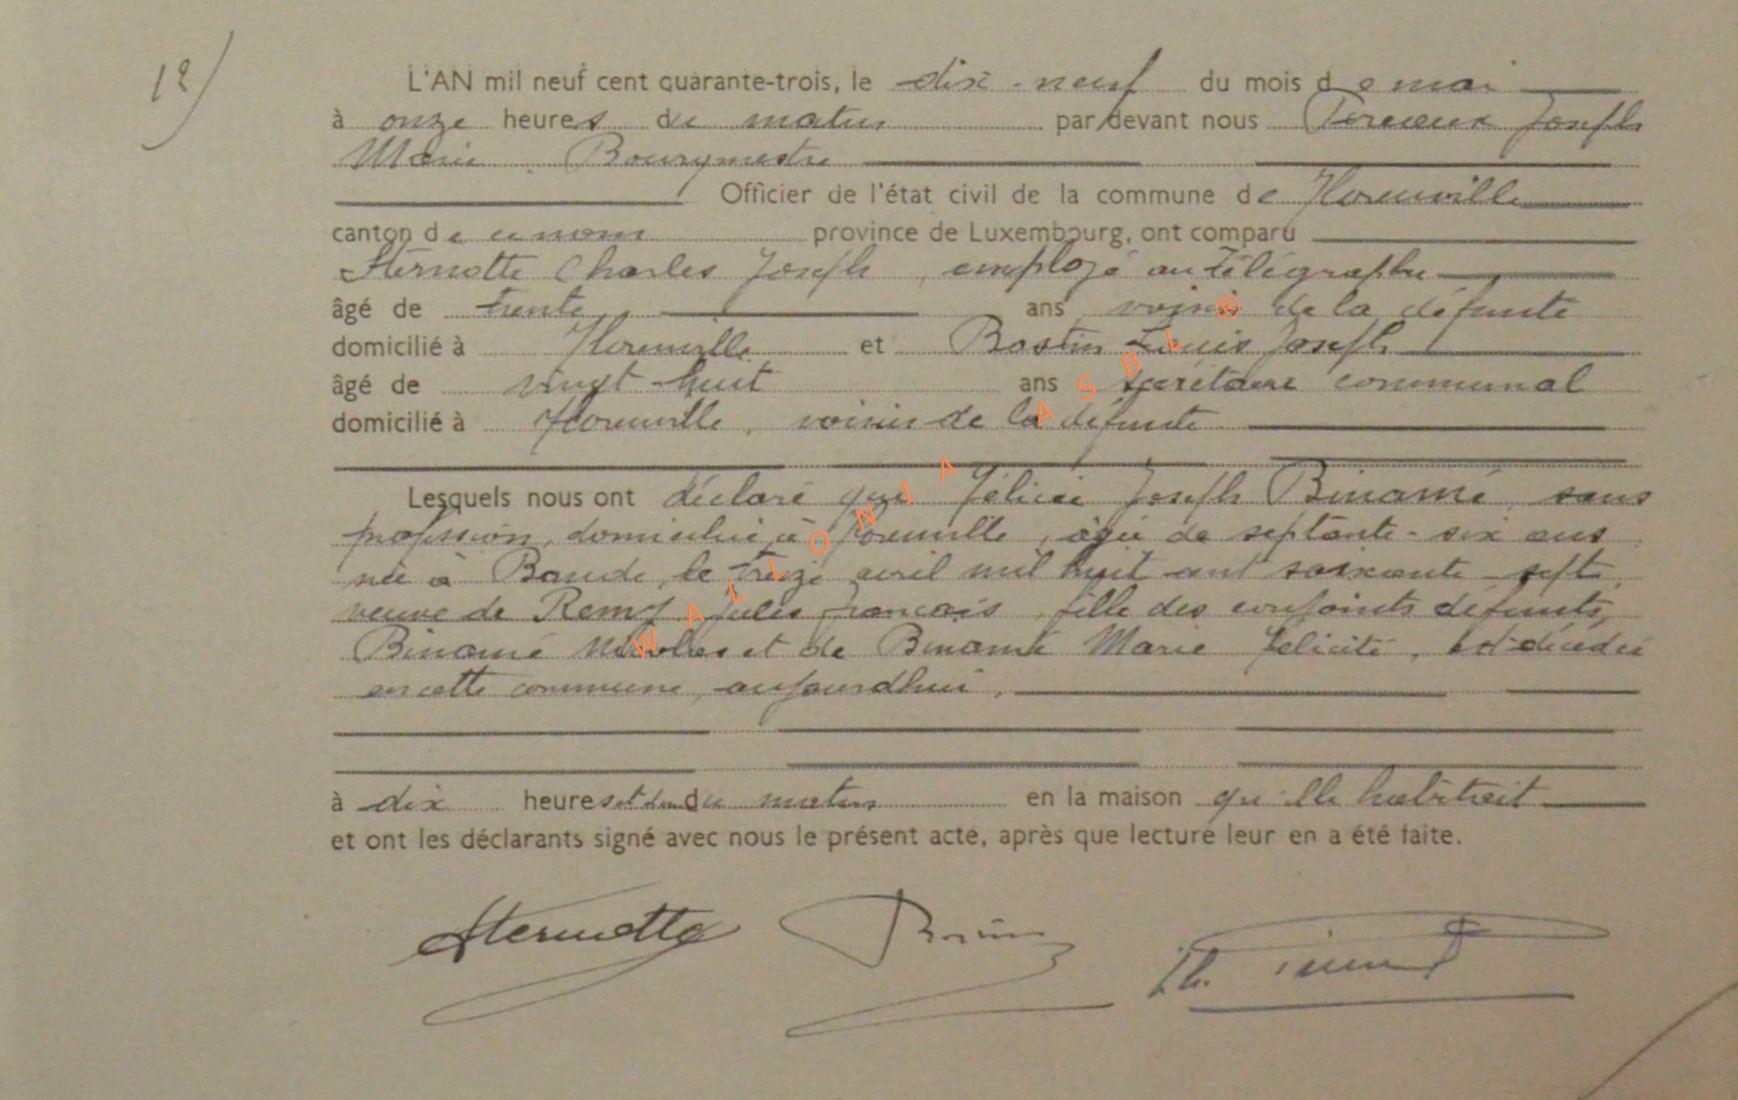 12)
L'AN mil neuf cent quarante-trois, le dix-neuf du mois de mai
à onze heures du matin par devant nous Joseph
Marie Bourgmestre
Officier de l'état civil de la commune de Floreuville
canton de ce nom province de Luxembourg, ont comparu
Sternotte Charles Joseph, employé au télégraphe
âgé de trente ans voisin de la défunte
domicilié à et Bastin Louis Joseph
âgé de vingt-huit ans secrétaire communal
domicilié à voisin de la défunte
Lesquels nous ont déclaré que Félicie Joseph Binamé, sans
profession, domiciliée à âgée de septante-six ans
née à Bande, le treize avril mil huit cent soixante-sept,
veuve de Remy Jules François, fille des conjoints défunts,
Binamé Nicolas et de Binamé Marie Félicité, est décédée
en cette commune, aujourd'hui,
à dix heures et demi du matin en la maison qu'elle habitait
et ont les déclarants signé avec nous le présent acte, après que lecture leur en a été faite.
Sternotte
WALLONIA ASBL ®